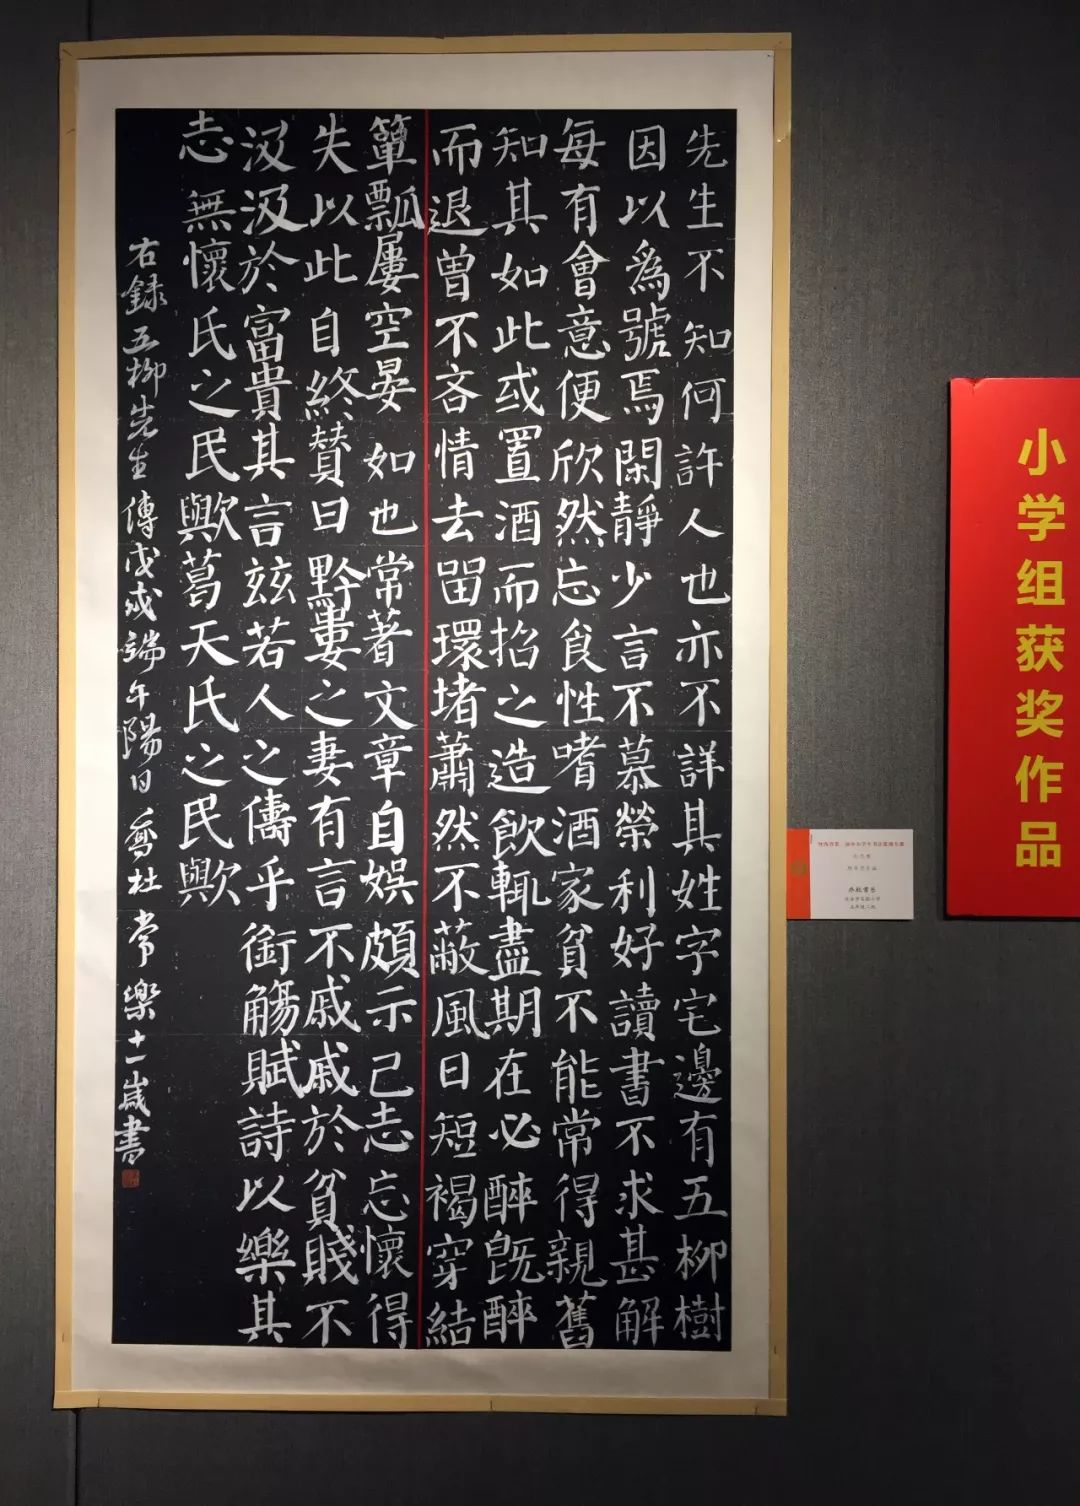 先生不知何許人也亦不詳其姓字宅邊有五柳樹
因以為號焉閑靜少言不慕榮利好讀書不求甚解
每有會意便欣然忘食性嗜酒家貧不能常得親舊
知其如此或置酒而招之造飲輒盡期在必醉既醉
而退曾不吝情去留環堵蕭然不蔽風日短褐穿結
簞瓢屢空晏如也常著文章自娛頗示己志忘懷得
失以此自終贊曰黔婁之妻有言不戚戚於貧賤不
汲汲於富貴其言玆若人之儔乎銜觴賦詩以樂其
志無懷氏之民歟葛天氏之民歟
右錄五柳先生傳戊戌端午陽日喬杜常樂十一歲書
小学组获奖作品